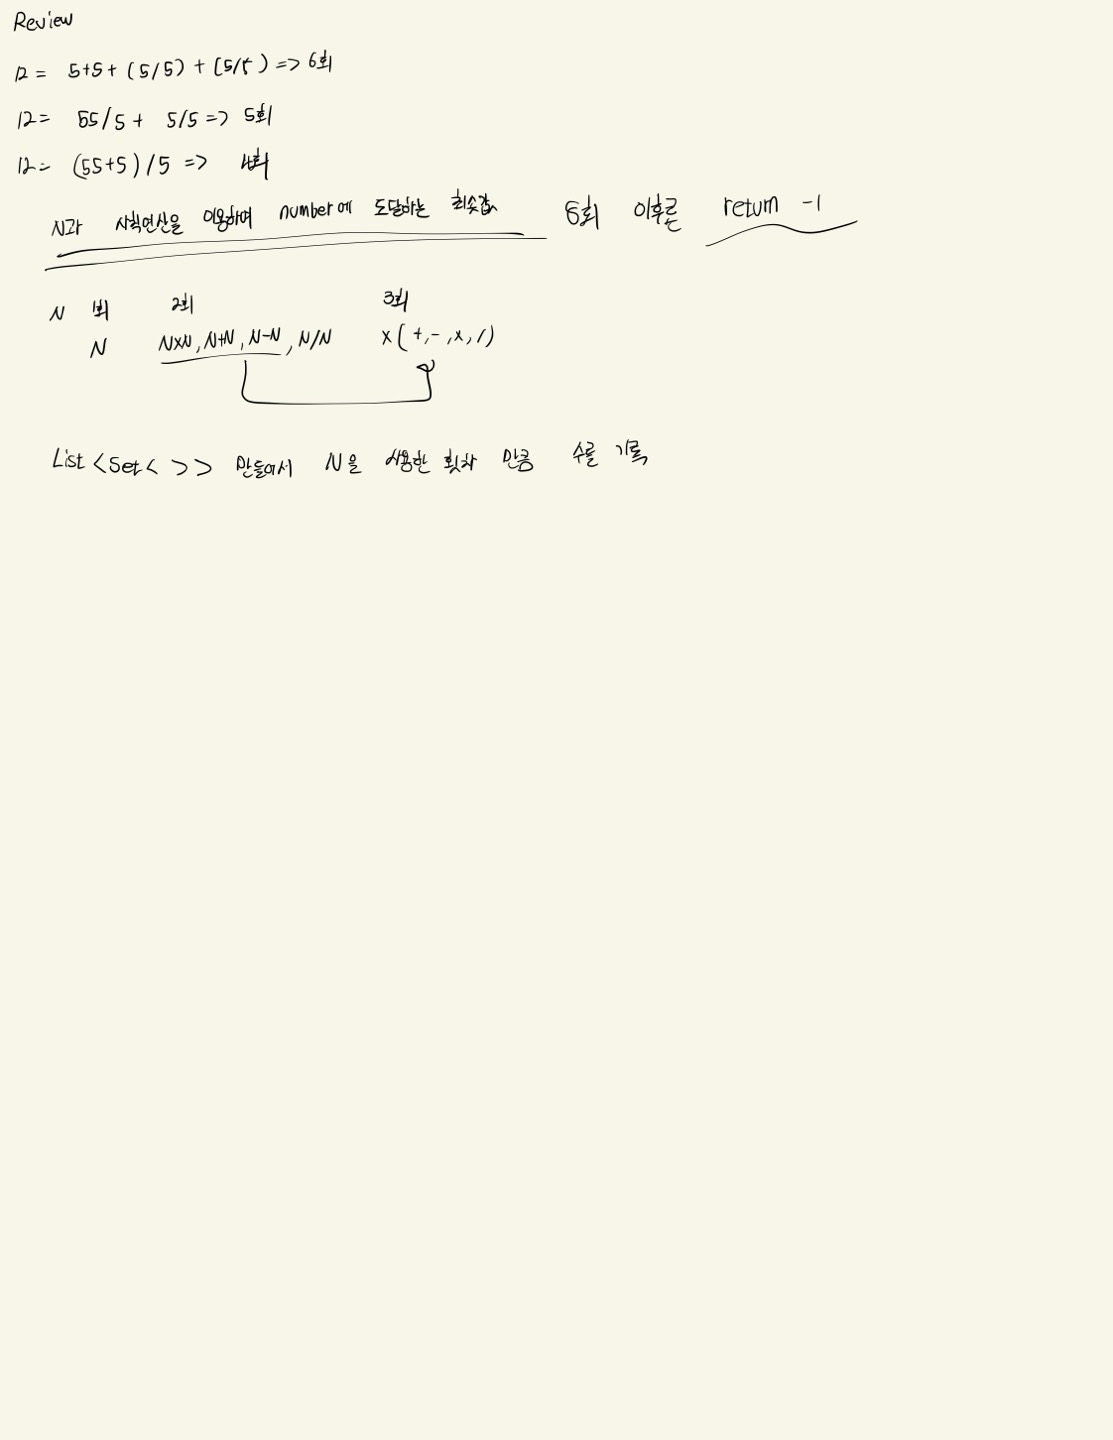 Review
12 = 5+5+ (5/5) + (5/5) => 6회
12= 55/5 + 5/5 => 5회
12= (55+5)/5 => 4회
N과 사칙연산을 이용하여 number에 도달하는 최솟값 8회 이후론 return -1
N 1회 2회 3회
N N×N, N+N, N-N, N/N ×(+,-,×,/)
List<Set< >> 만들어서 N을 사용한 횟차 만큼 수를 기록